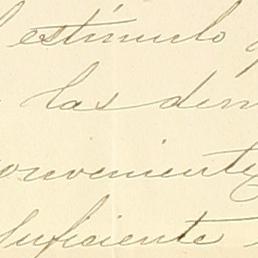 estímulo
las dem
convenientes
suficiente